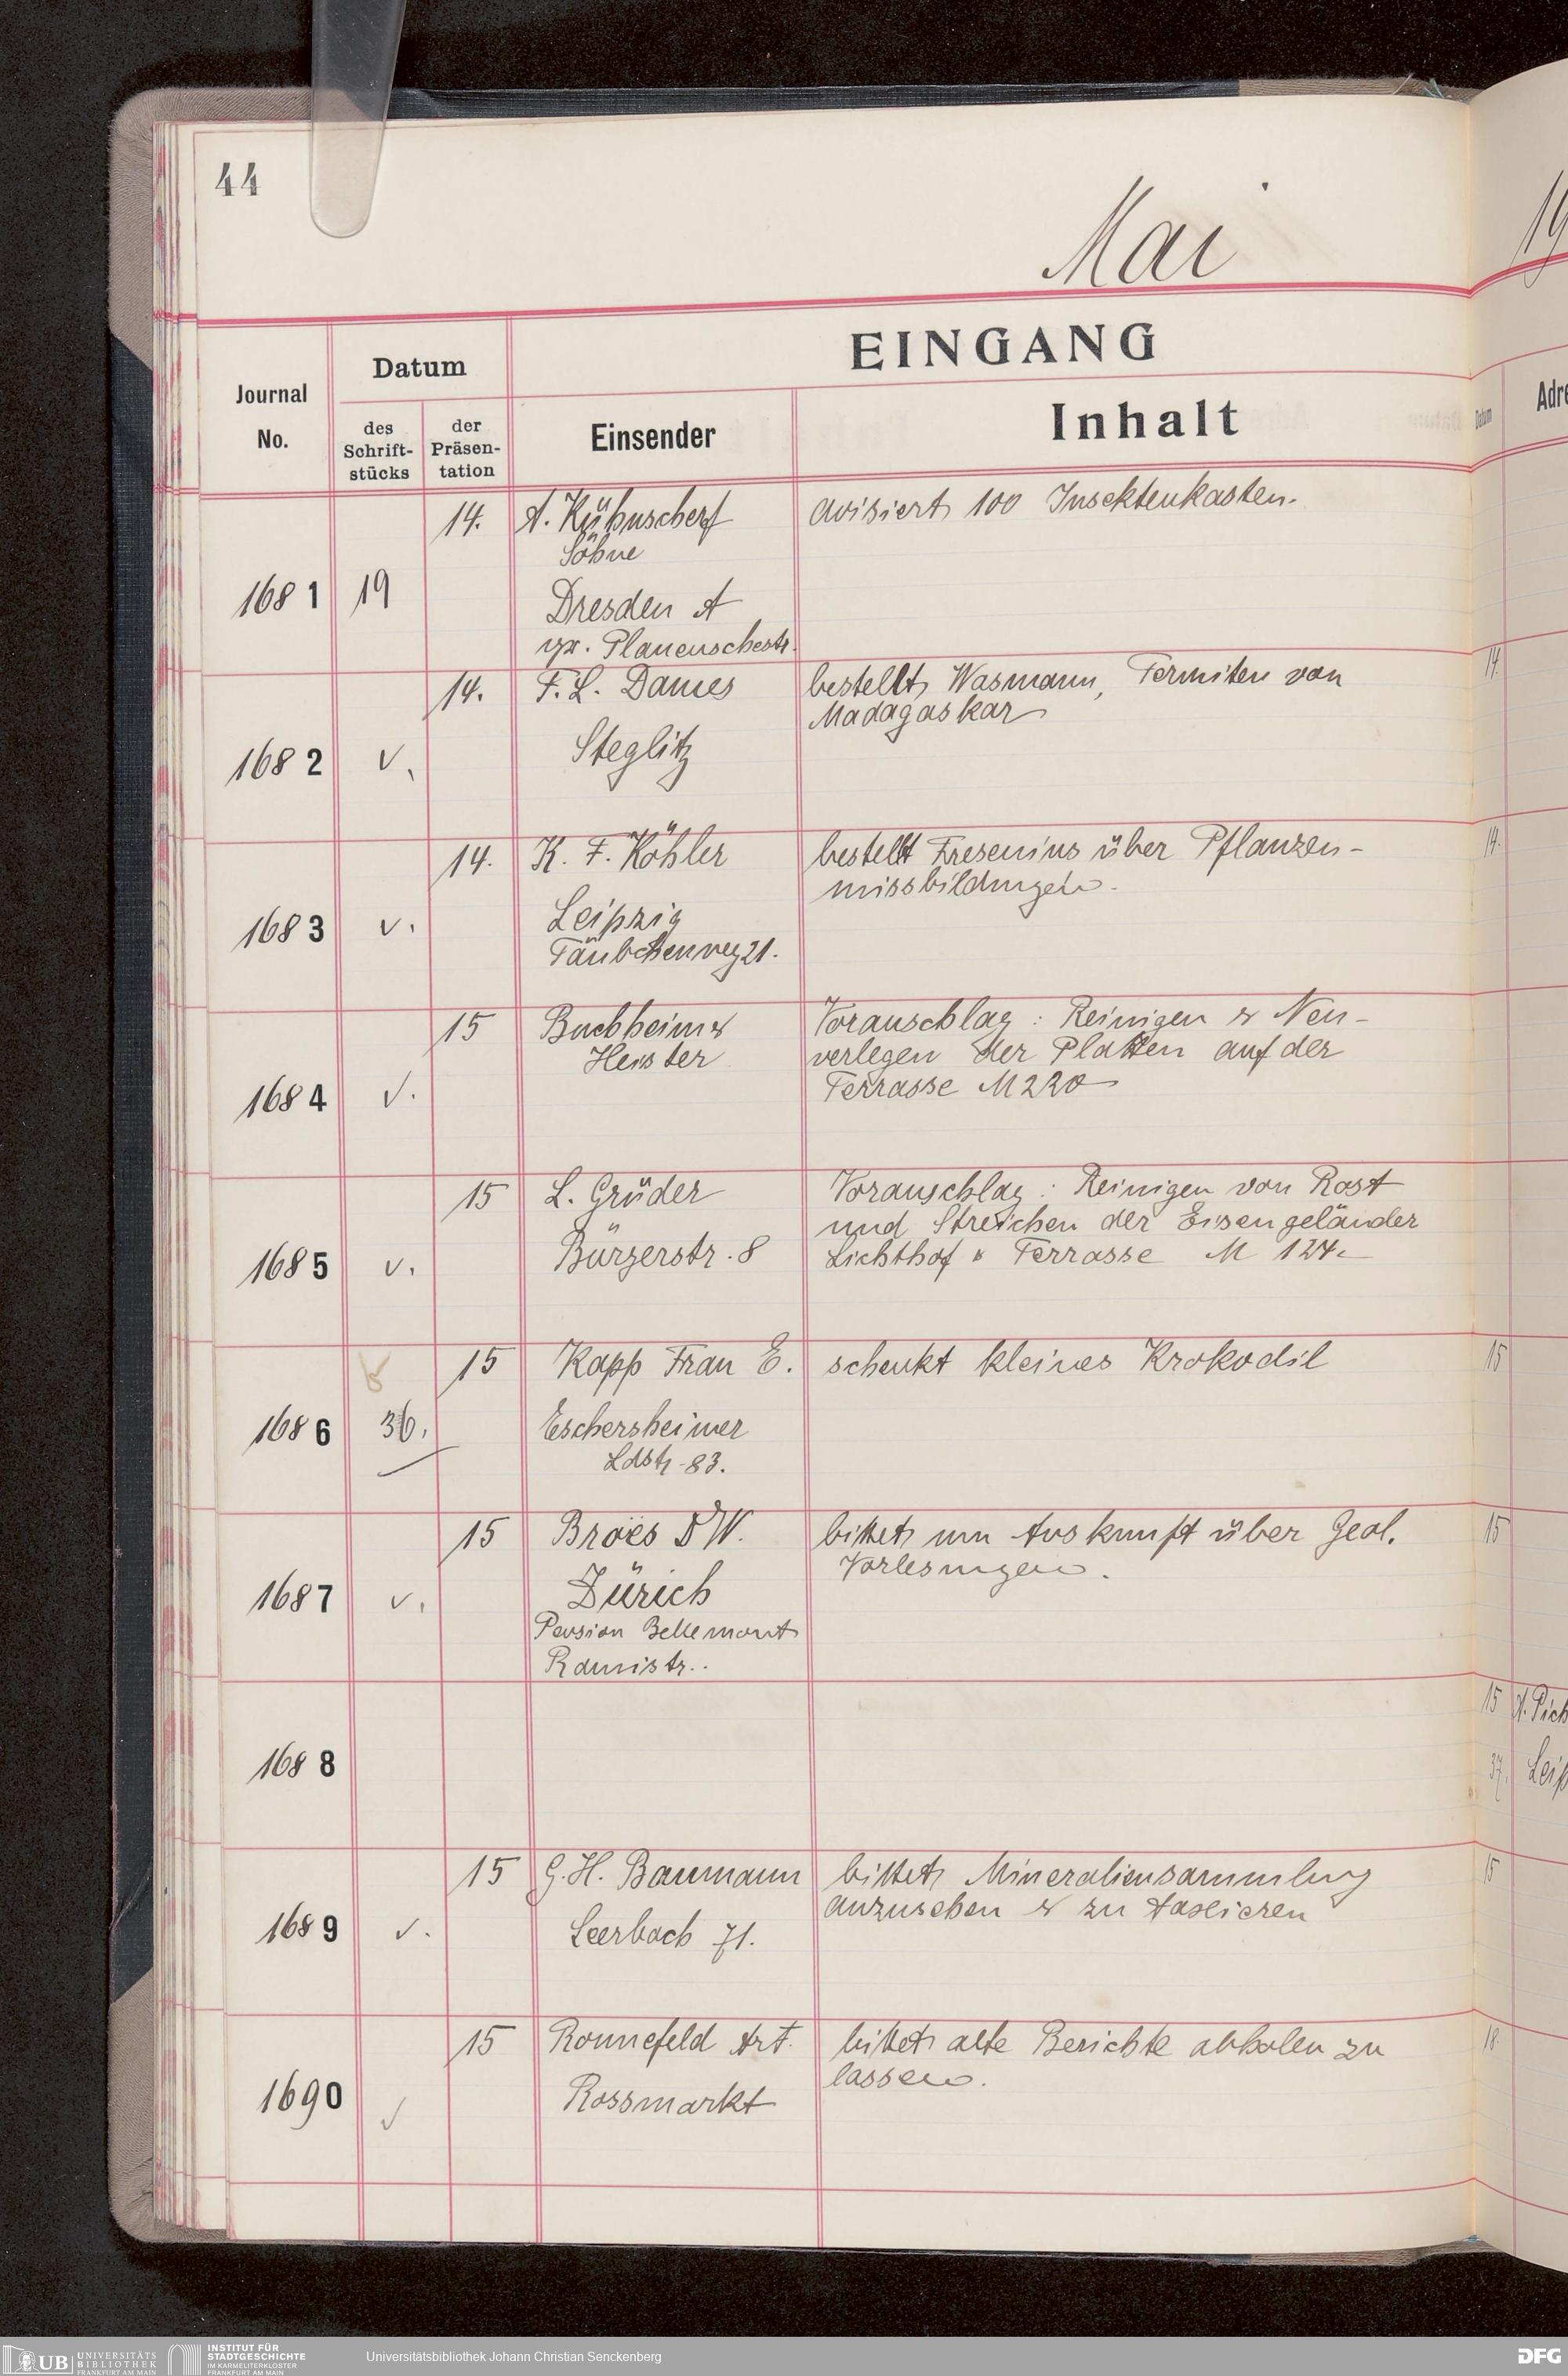 44
Mai
19
EINGANG
Journal
No.
Datum
des
Schrift-
stücks
der
Präsen-
tation
Einsender
Inhalt
Datum
Adre
1681 19 14. A. Kühnscherf
Söhne
Dresden A
gr. Plauenschestr.
avisiert 100 Insektenkasten.
1682 v. 14. F. L. Dames
Steglitz
bestellt Wasmann, Termiten von
Madagaskar
14.
1683 v. 14. K. F. Köhler
Leipzig
Täubchenweg 21.
bestellt Fresenius über Pflanzen-
missbildungen.
14.
1684 v. 15 Buchheim &
Heister
Voranschlag: Reinigen & Neu-
verlegen der Platten auf der
Terrasse M 220
1685 v. 15 L. Grüder
Bürgerstr. 8
Voranschlag: Reinigen von Rost
und Streichen der Eisengeländer
Lichthof & Terrasse M 124.-
1686 36. 15 Kapp Frau E.
Eschersheimer
Ldstr. 83.
schenkt kleines Krokodil
15
1687 v. 15 Broës D W.
Zürich
Pension Bellemont
bittet um Auskunft über Geol.
Vorlesungen.
15
1688
15
37. Leip
1689 v. 15 G. H. Baumann
Leerbach 71.
bittet Mineraliensammlung
anzusehen & zu taxieren
15
1690 v 15 Ronnefeld Art.
Rossmarkt
bittet alte Berichte abholen zu
lassen.
18
UB UNIVERSITÄTS
BIBLIOTHEK
FRANKFURT AM MAIN
INSTITUT FÜR
STADTGESCHICHTE
IM KARMELITERKLOSTER
FRANKFURT AM MAIN
Universitätsbibliothek Johann Christian Senckenberg
DFG